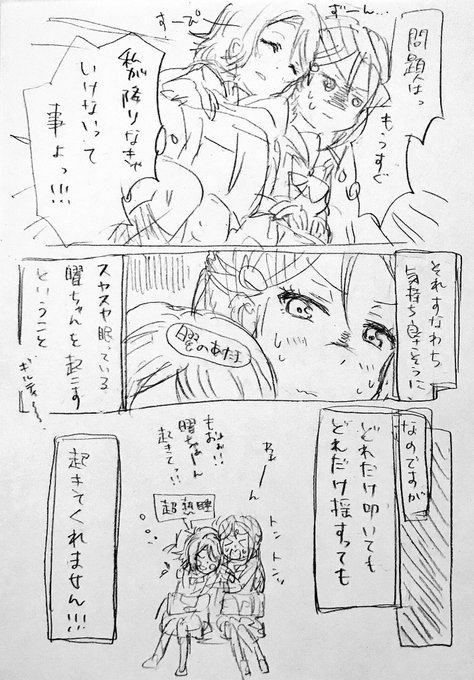 問題はっ
もうすぐ
がーん…
すーぴー
私が降りなきゃ
いけないって
事よっ!!!
それすなわち
気持ち良さそうに
曜のあたま
スヤスヤ眠っている
曜ちゃんを起こす
ということ
ギルティー…
なのですが
どれだけ叩いても
どれだけ揺すっても
わーん
トン
トン
もおぉ!!
曜ちゃーん
起きてっ!!
超熟睡
起きてくれません!!!